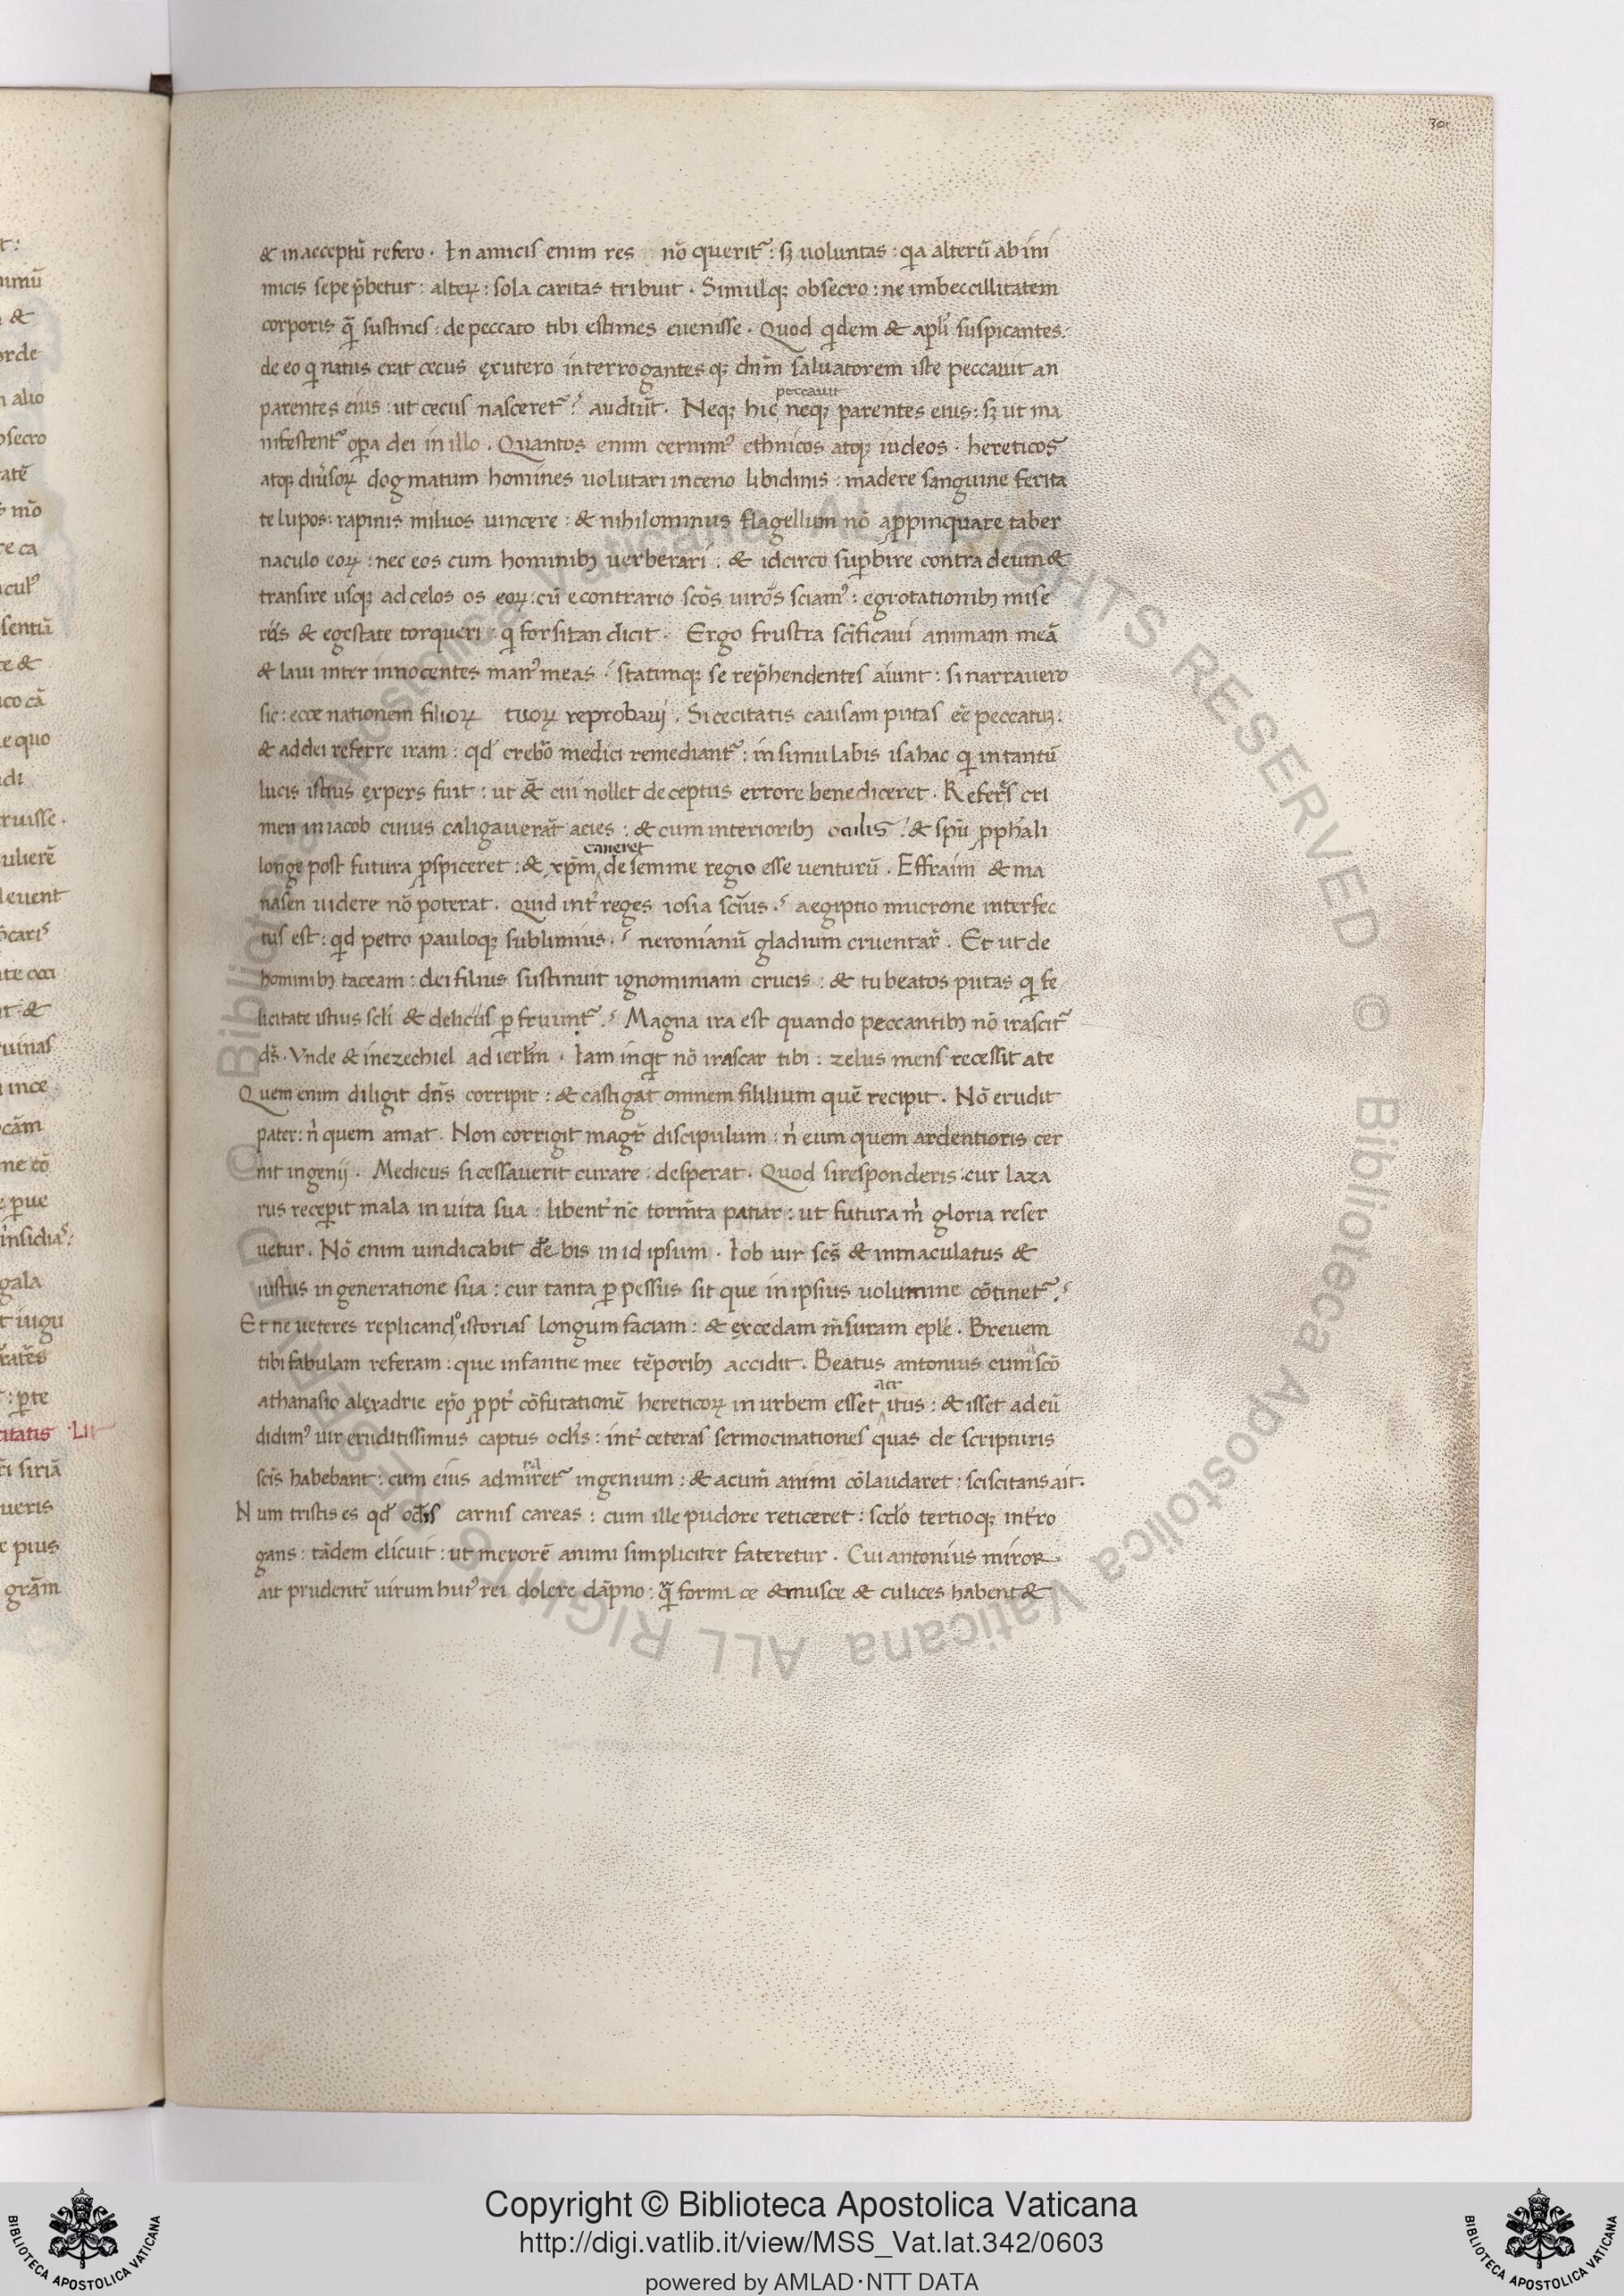 301
& in acceptũ refero . In amicis enim res nõ querit᷑ : sꝫ uoluntas : qͥa alterũ ab ini
micis sepe p̃betur : alteꝝ : sola caritas tribuit . Simulqꝫ obsecro : ne imbeccillitatem
corporis qͣ̃ sustines : de peccato tibi estimes euenisse . Quod qͥdem & apl̃i suspicantes :
de eo qͥ natus erat cecus ex utero interrogantesqꝫ dñm saluatorem iste peccauit an
parentes eius : ut cecus nasceret᷑ ? audiũt . Neqꝫ hic peccauit neqꝫ parentes eius : sꝫ ut ma
nifestent᷑ oꝑa dei in illo . Quantos enim cernimꝰ ethnicos atqꝫ iudeos . hereticos
atqꝫ diũsoꝝ dogmatum homines uolutari in ceno libidinis : madere sanguine ferita
te lupos : rapinis miluos uincere : & nihilominus flagellum nõ aꝓpinquare taber
naculo eoꝝ : nec eos cum hominibꝫ uerberari : & idcirco suꝑbire contra deum &
transire usqꝫ ad celos os eoꝝ : cũ econtrario scõs uiros sciamꝰ : egrotationibꝫ mise
riis & egestate torqueri : qͥ forsitan dicit . Ergo frustra scĩficaui animam meã
& laui inter innocentes manꝰ meas ? statimqꝫ se rep̃hendentes aiunt : si narrauero
sic : ecce nationem filioꝝ tuoꝝ reprobaui . Si cecitatis causam putas eẽ peccatuꝫ :
& ad dei referre iram : qd̾ crebro medici remediant᷑ : insimulabis isahac qͥ in tantũ
lucis istius expers fuit : ut & cui nollet deceptus errore benediceret . Referes cri
men in iacob cuius caligauerat acies : & cum interioribꝫ oculis : & spũ ꝓphãli
longe post futura ꝑspiceret : & xp̃m caneret de semine regio esse uenturũ . Effraim & ma
nasen uidere nõ poterat . Quid int̾ reges iosia scĩus ? aegiptio mucrone interfec
tus est : qͥd petro pauloqꝫ sublimius ? neronianũ gladium cruentar̃ . Et ut de
hominibꝫ taceam : dei filius sustinuit ignominiam crucis : & tu beatos putas qͥ fe
licitate istius scl̃i & deliciis ꝑfruunt᷑ ? Magna ira est quando peccantibꝫ nõ irascit᷑
ds̃ . Vnde & in ezechiel ad ierl̃m . Iam inqͥt nõ irascar tibi : zelus meus recessit a te
Quem enim diligit dñs corripit : & castigat omnem fililium quẽ recipit . Nõ erudit
pater : ñ quem amat . Non corrigit magr̃ discipulum : ñ eum quem ardentioris cer
nit ingenij . Medicus si cessauerit curare : desperat . Quod si responderis : cur laza
rus receꝑit mala in uita sua : libent̾ nc̃ torm̃ta patiar : ut futura m̃ gloria reser
uetur . Nõ enim uindicabit de bis in id ipsum . Iob uir scs̃ & inmaculatus &
iustus in generatione sua : cur tanta ꝑpessus sit que in ipsius uolumine cõtinet᷑ ?
Et ne ueteres replicandº istorias longum faciam : & excedam m̃suram eplẽ . Breuem
tibi fabulam referam : que infantie mee tẽporibꝫ accidit . Beatus antonius cum a scõ
athanasio alexadrie ep̃o ꝓpt̾ cõfutationẽ hereticoꝝ in urbem esset acc itus : & isset ad eũ
didimꝰ uir eruditissimus captus ocl̃is : int̾ ceteras sermocinationes quas de scripturis
scĩs habebant : cum eius admiraret᷑ ingenium : & acum̃ animi cõlaudaret : sciscitans ait .
Num tristis es qd̾ carnis careas : cum ille pudore reticeret : scd̃o tertioqꝫ int̾ro
gans : tãdem elicuit : ut merorẽ animi simpliciter fateretur . Cui antonius miror
ait prudentẽ uirum huiꝰ rei dolere dãpno : qͣ̃ formice & musce & culices habent &
Copyright © Biblioteca Apostolica Vaticana
http://digi.vatlib.it/view/MSS_Vat.lat.342/0603
powered by AMLAD·NTT DATA
BIBLIOTECA APOSTOLICA VATICANA
BIBLIOTECA APOSTOLICA VATICANA
© Biblioteca Apostolica Vaticana ALL RIGHTS RESERVED © Biblioteca Apostolica Vaticana ALL RIGHTS RESERVED